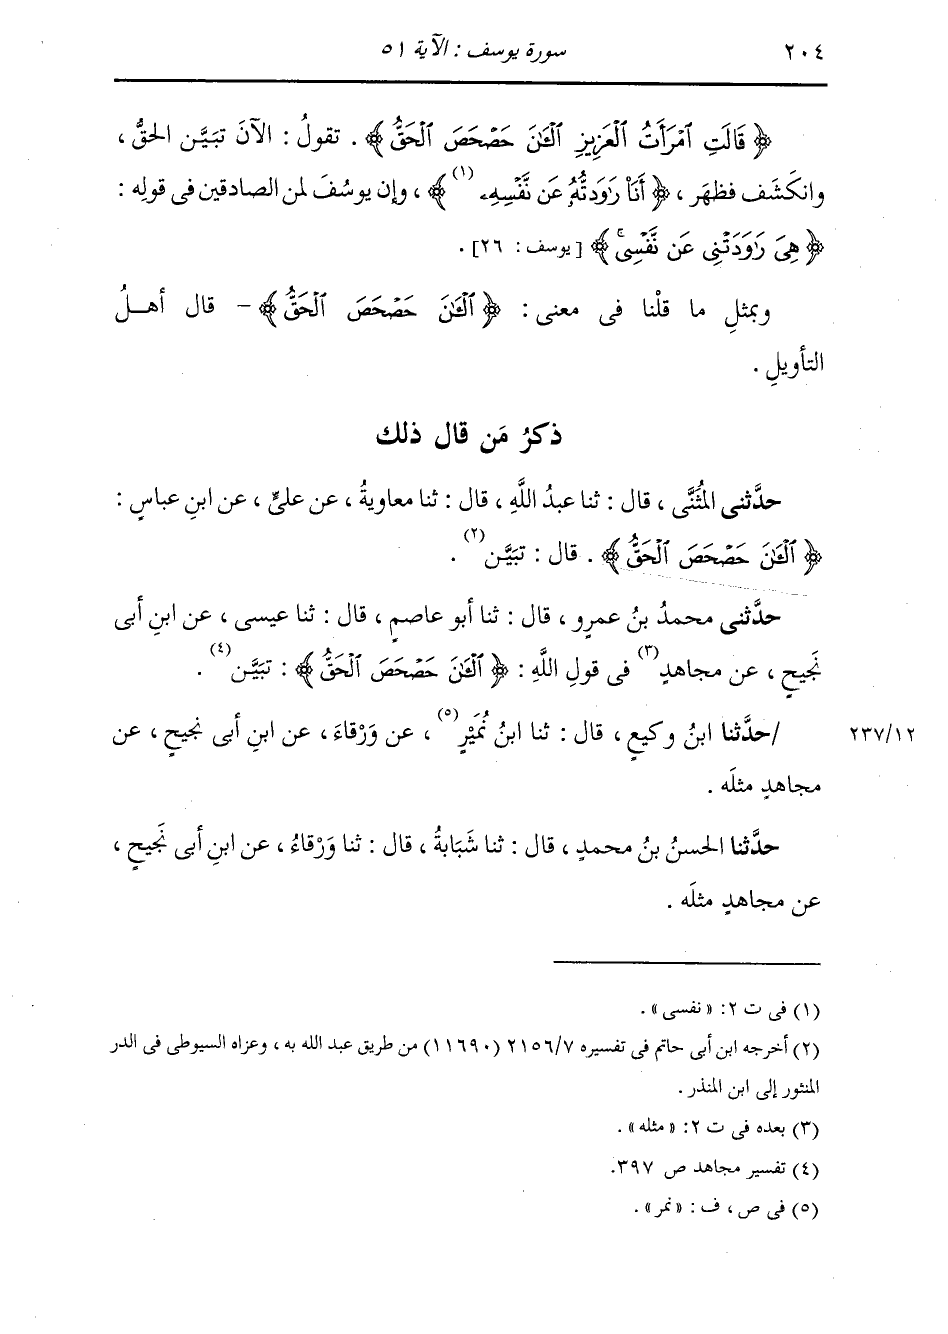 ٢٠٤ سورة يوسف : الآية ٥١
﴿ قَالَتِ ٱمْرَأَتُ ٱلْعَزِيزِ ٱلْـَٰٔنَ حَصْحَصَ ٱلْحَقُّ ﴾ . تقولُ : الآنَ تبَيَّن الحقُّ ،
وانكَشَف فظهَر ، ﴿ أَنَا۠ رَٰوَدتُّهُۥ عَن نَّفْسِهِۦ (١) ﴾ ، وإن يوسُفَ لمن الصادقين فى قولِه :
﴿ هِىَ رَٰوَدَتْنِى عَن نَّفْسِىۚ ﴾ [ يوسف : ٢٦] .
وبمثلِ ما قلْنا فى معنى : ﴿ ٱلْـَٰٔنَ حَصْحَصَ ٱلْحَقُّ ﴾ - قال أهـلُ
التأويلِ .
ذكرُ مَن قال ذلك
حدَّثنى المُثَنَّى ، قال : ثنا عبدُ اللَّهِ ، قال : ثنا معاويةُ ، عن علىٍّ ، عن ابنِ عباسٍ :
﴿ ٱلْـَٰٔنَ حَصْحَصَ ٱلْحَقُّ ﴾ . قال : تبَيَّن (٢) .
حدَّثنى محمدُ بنُ عمرٍو ، قال : ثنا أبو عاصمٍ ، قال : ثنا عيسى ، عن ابنِ أبى
نَجيحٍ ، عن مجاهدٍ (٣) فى قولِ اللَّهِ : ﴿ ٱلْـَٰٔنَ حَصْحَصَ ٱلْحَقُّ ﴾ : تبَيَّن (٤) .
٢٣٧/١٢ /حدَّثنا ابنُ وكيعٍ ، قال : ثنا ابنُ نُمَيْرٍ (٥) ، عن وَرْقاءَ ، عن ابنِ أبى نجيحٍ ، عن
مجاهدٍ مثلَه .
حدَّثنا الحسنُ بنُ محمدٍ ، قال : ثنا شَبَابةُ ، قال : ثنا وَرْقاءُ ، عن ابنِ أبى نَجيحٍ ،
عن مجاهدٍ مثلَه .
(١) فى ت ٢: « نفسى » .
(٢) أخرجه ابن أبى حاتم فى تفسيره ٢١٥٦/٧ (١١٦٩٠) من طريق عبد الله به ، وعزاه السيوطى فى الدر
المنثور إلى ابن المنذر .
(٣) بعده فى ت ٢: « مثله » .
(٤) تفسير مجاهد ص ٣٩٧.
(٥) فى ص ، ف : « نمر » .